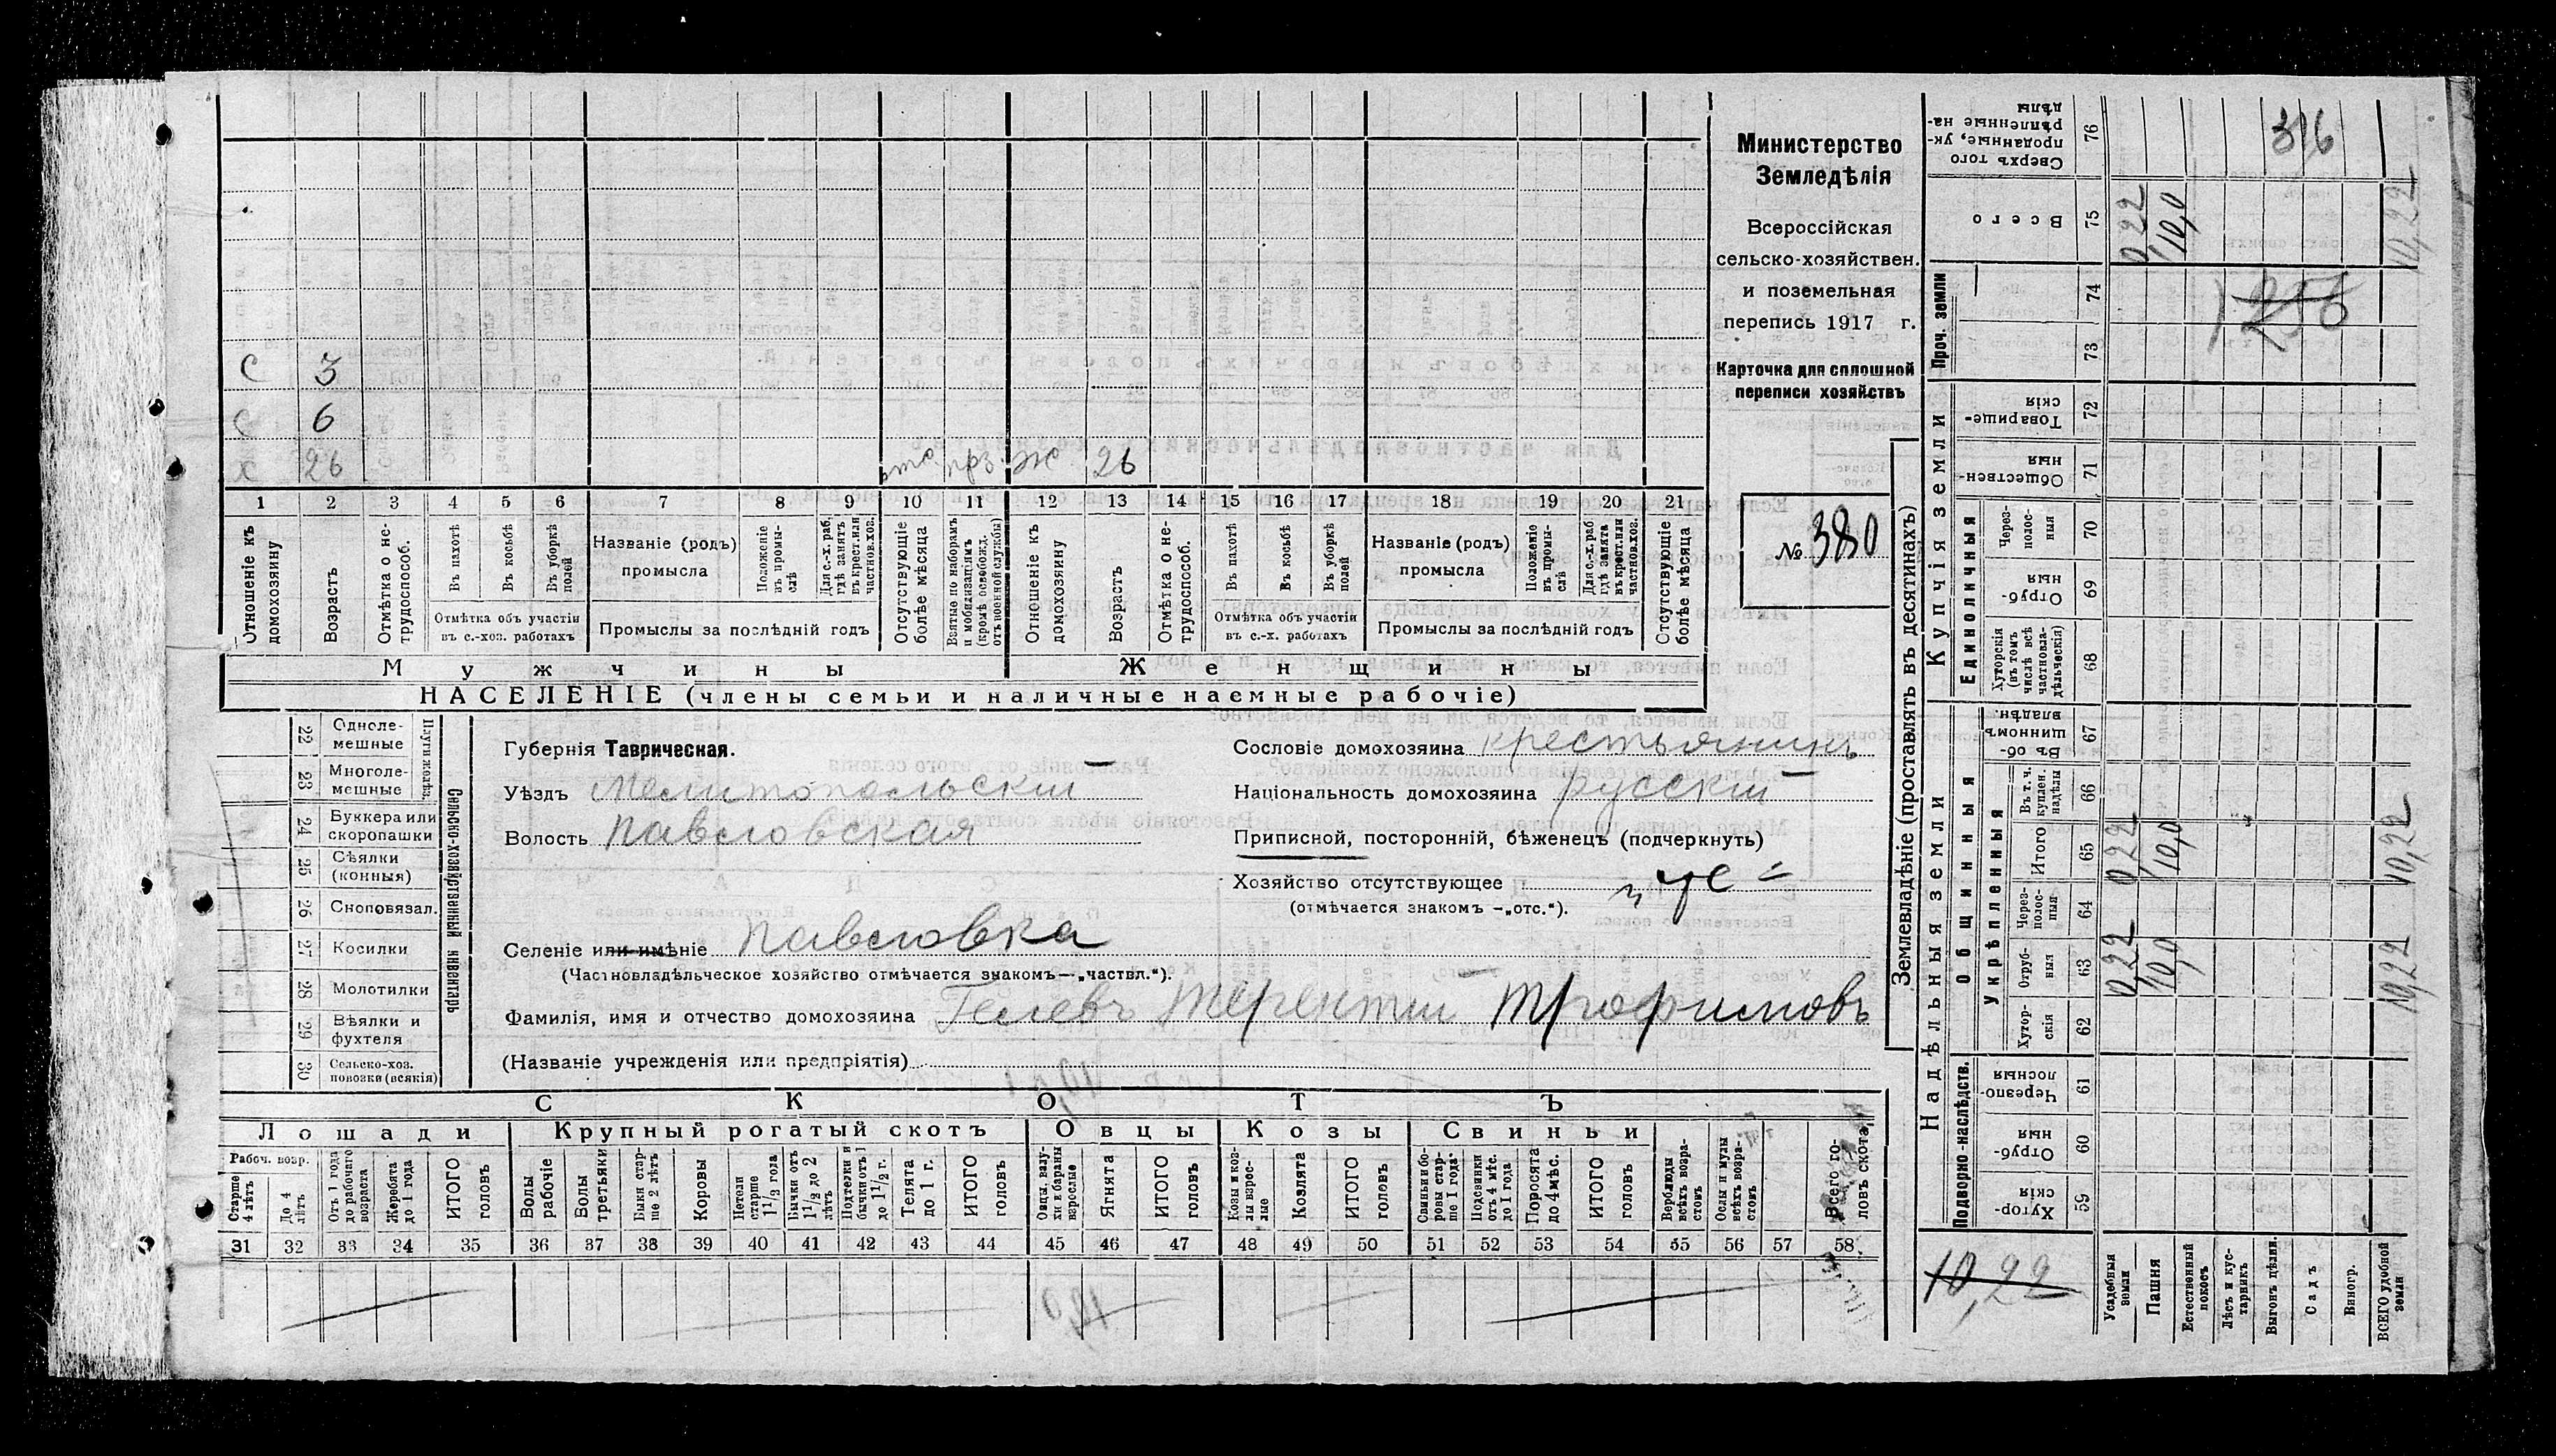 Министерство
Земледѣлія
Всероссійская
сельско-хозяйствен.
и поземельная
перепись 1917 г.
Карточка для сплошной
переписи хозяйствъ
№ 380
С 3
С 6
Х 26 отс. прз. ж 26
1 2 3 4 5 6 7 8 9 10 11 12 13 14 15 16 17 18 19 20 21
Отношеніе къ домохозяину
Возрастъ
Отмѣтка о не-трудоспособ.
Въ пахотѣ
Въ косьбѣ
Въ уборкѣ полей
Отмѣтка объ участіи
въ с.-хоз. работахъ
Названіе (родъ)
промысла
Положеніе въ промы-слѣ
Для с.-х. раб. гдѣ занятъ въ крест. или частновл. хоз.
Промыслы за послѣдній годъ
Отсутствующіе болѣе мѣсяца
Взятые по наборамъ и мобилизаціямъ (кромѣ освобожд. отъ военной службы)
Отношеніе къ домохозяину
Возрастъ
Отмѣтка о не-трудоспособ.
Въ пахотѣ
Въ косьбѣ
Въ уборкѣ полей
Отмѣтка объ участіи
въ с.-х. работахъ
Названіе (родъ)
промысла
Положеніе въ промы-слѣ
Для с.-х. раб. гдѣ занята въ крест. или частновл. хоз.
Промыслы за послѣдній годъ
Отсутствующіе болѣе мѣсяца
Мужчины Женщины
НАСЕЛЕНІЕ (члены семьи и наличные наемные рабочіе)
Сельско-хозяйственный инвентарь
Плуги желѣз.
22 Одноле-мешные
23 Многоле-мешные
24 Буккера или скоропашки
25 Сѣялки (конныя)
26 Сноповязал.
27 Косилки
28 Молотилки
29 Вѣялки и фухтеля
30 Сельско-хоз. повозки (всякія)
Губернія Таврическая.
Уѣздъ Мелитопольскій
Волость Павловская
Сословіе домохозяина крестьянинъ
Національность домохозяина русскій
Приписной, посторонній, бѣженецъ (подчеркнуть)
Хозяйство отсутствующее
(отмѣчается знакомъ —„отс.“).
Селеніе или имѣніе Павловка
(Частновладѣльческое хозяйство отмѣчается знакомъ—„частвл.“).
Фамилія, имя и отчество домохозяина Гелевъ Терентій Трофимовъ
(Названіе учрежденія или предпріятія)
СКОТЪ
Лошади Крупный рогатый скотъ Овцы Козы Свиньи
Рабоч. возр.
Старше 4 лѣтъ
До 4 лѣтъ
Отъ 1 года до рабочаго возраста
Жеребята до 1 года
ИТОГО головъ
Волы рабочіе
Волы третьяки
Быки стар-ше 2 лѣтъ
Коровы
Нетели старше 1 1/2 года
Бычки отъ 1 1/2 до 2 лѣтъ
Подтелки и бычки отъ 1 до 1 1/2 г.
Телята до 1 г.
ИТОГО головъ
Овцы, валу-хи и бараны взрослые
Ягнята
ИТОГО головъ
Козы и коз-лы взрос-лые
Козлята
ИТОГО головъ
Свиньи и бо-ровы стар-ше 1 года
Подсвинки отъ 4 мѣс. до 1 года
Поросята до 4 мѣс.
ИТОГО головъ
Верблюды всѣхъ возра-стовъ
Ослы и мулы всѣхъ возра-стовъ
Всего го-ловъ скота
31 32 33 34 35 36 37 38 39 40 41 42 43 44 45 46 47 48 49 50 51 52 53 54 55 56 57 58
Землевладѣніе (проставлять въ десятинахъ)
Надѣльныя земли
Купчія земли
Проч. земли
Подворно-наслѣдств.
Общинныя
Укрѣпленныя
Единоличныя
Сверхъ того проданные, ук-рѣпленные на-дѣлы 76 316
Всего 75 0,22 10,0 10,22
74 256
73
Товарище-скія 72
Обществен-ныя 71
Через-полос-ныя 70
Отруб-ныя 69
Хуторскія (въ томъ числѣ всѣ частновла-дѣльческія) 68
Въ об-щинномъ владѣн. 67
Въ т. ч. куплен. надѣлы 66
Итого 65 0,22 10,0 10,22
Через-полос-ныя 64
Отруб-ныя 63 0,22 10,0 10,22
Хутор-скія 62
Черезпо-лосныя 61
Отруб-ныя 60
Хутор-скія 59
10,22
Усадебныя земли
Пашня
Естественный покосъ
Лѣсъ и кус-тарникъ
Выгонъ дѣлим.
Садъ
Виногр.
ВСЕГО удобной земли